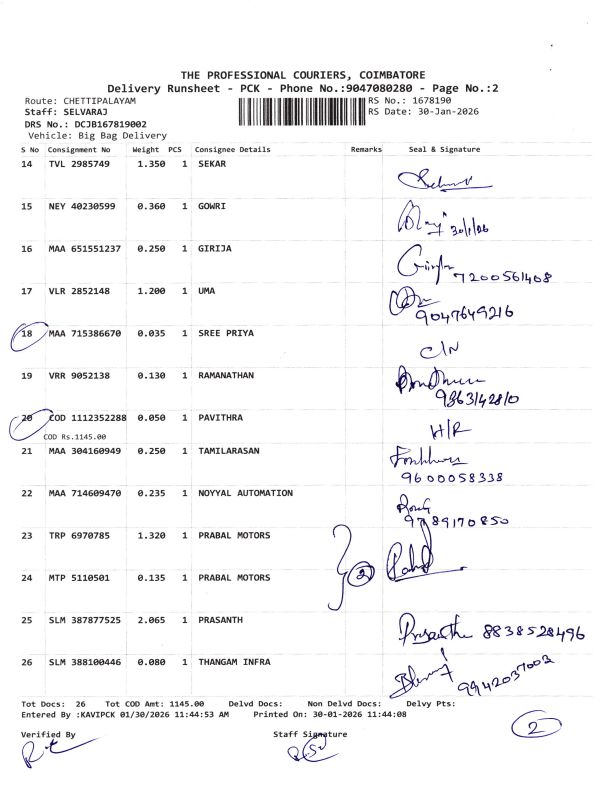 THE PROFESSIONAL COURIERS, COIMBATORE
Delivery Runsheet - PCK - Phone No.:9047080280 - Page No.:2
Route: CHETTIPALAYAM RS No.: 1678190
Staff: SELVARAJ RS Date: 30-Jan-2026
DRS No.: DCJB167819002
Vehicle: Big Bag Delivery
S No Consignment No Weight PCS Consignee Details Remarks Seal & Signature
14 TVL 2985749 1.350 1 SEKAR
15 NEY 40230599 0.360 1 GOWRI
30/1/26
16 MAA 651551237 0.250 1 GIRIJA
7200561408
17 VLR 2852148 1.200 1 UMA
9047649216
18 MAA 715386670 0.035 1 SREE PRIYA
C/N
19 VRR 9052138 0.130 1 RAMANATHAN
9863142810
20 COD 1112352288 0.050 1 PAVITHRA
H/R
COD Rs.1145.00
21 MAA 304160949 0.250 1 TAMILARASAN
9600058338
22 MAA 714609470 0.235 1 NOYYAL AUTOMATION
9789170850
23 TRP 6970785 1.320 1 PRABAL MOTORS
2
24 MTP 5110501 0.135 1 PRABAL MOTORS
25 SLM 387877525 2.065 1 PRASANTH
Prasanth 8838528496
26 SLM 388100446 0.080 1 THANGAM INFRA
9942037003
Tot Docs: 26 Tot COD Amt: 1145.00 Delvd Docs: Non Delvd Docs: Delvy Pts:
Entered By :KAVIPCK 01/30/2026 11:44:53 AM Printed On: 30-01-2026 11:44:08
2
Verified By Staff Signature